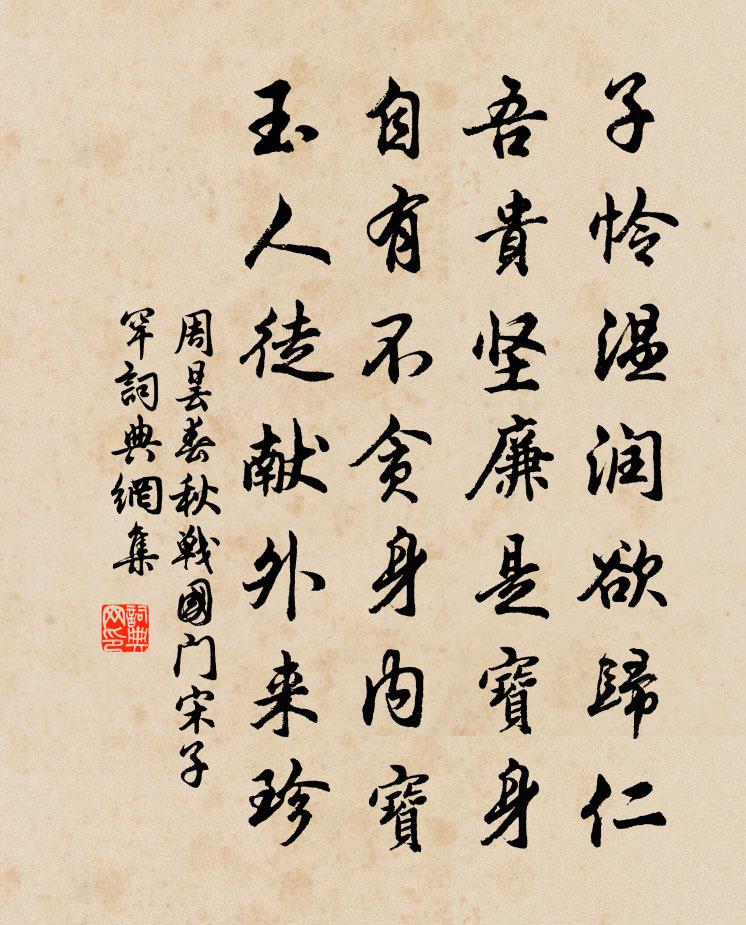 子怜温润欲歸仁
吾貴坚廉是寶身
自有不贪身内寶
玉人徒献外来珍
周昙春秋戰國门宋子
罕詞典網集
詞典网印